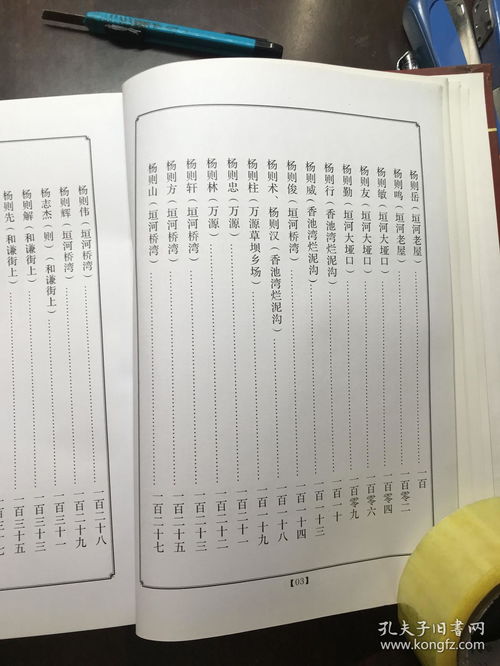 杨则岳（垣河老屋）……一百
杨则鸣（垣河老屋）……一百零二
杨则敏（垣河大垭口）……一百零四
杨则友（垣河大垭口）……一百零六
杨则勤（垣河大垭口）……一百零九
杨则行（香池湾烂泥沟）……一百一十
杨则威（香池湾烂泥沟）……一百一十三
杨则俊（垣河桥湾）……一百一十四
杨则术、杨则汉（香池湾烂泥沟）……一百一十八
杨则柱（万源草坝乡场）……一百一十九
杨则忠（万源）……一百二十一
杨则林（万源）……一百二十二
杨则轩（垣河桥湾）……一百二十三
杨则方（垣河桥湾）……一百二十五
杨则山（垣河桥湾）……一百二十七
【03】
杨则伟（垣河桥湾）……一百二十八
杨则辉（垣河桥湾）……一百二十九
杨志杰（则）（和谦街上）……一百三十一
杨则解（和谦街上）……一百三十三
杨则先（和谦街上）……一百三十五
一百三十七
孔夫子旧书网
www.kongfz.com